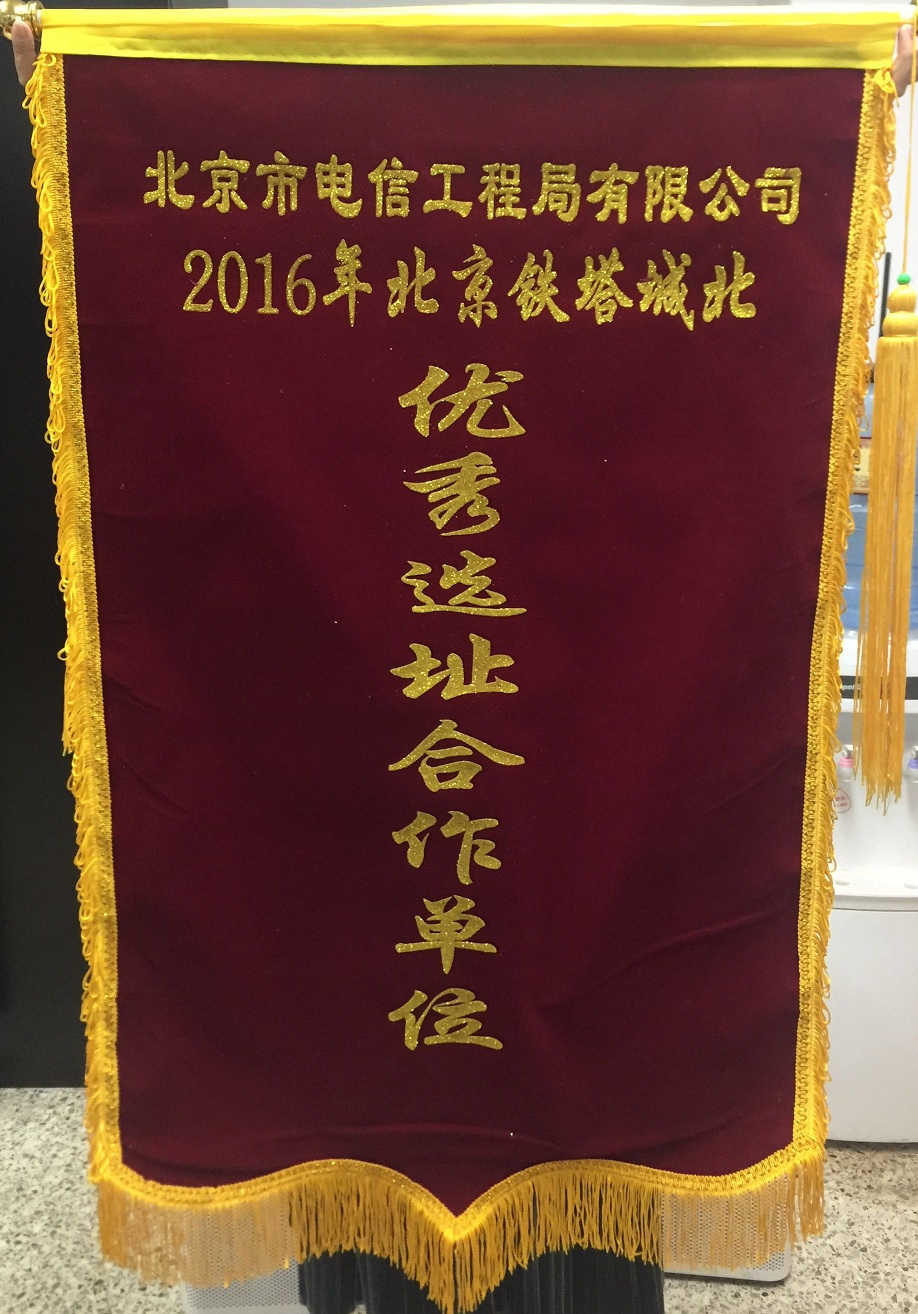 北京市电信工程局有限公司
2016年北京铁塔城北
优秀选址合作单位